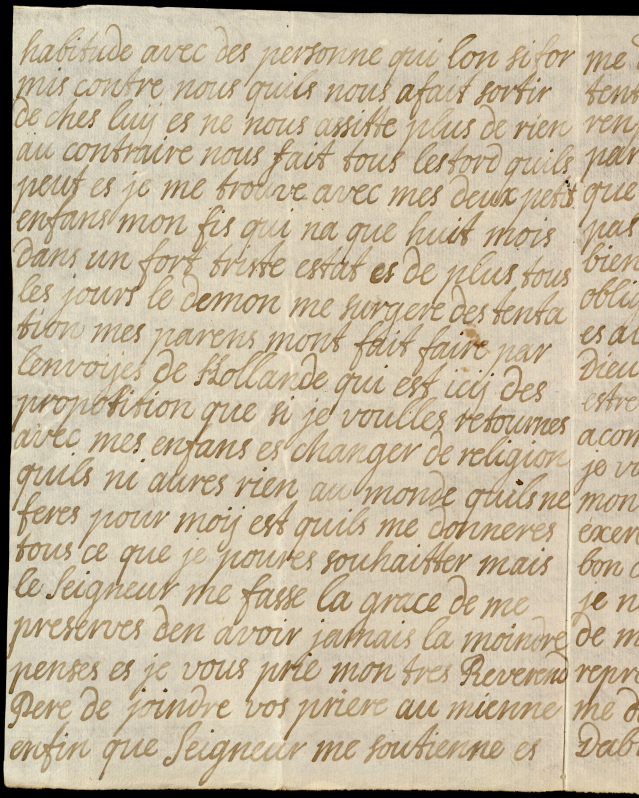 habitude avec des personne qui lon si for
mis contre nous quils nous afait sortir
de ches luij es ne nous assitte plus de rien
au contraire nous fait tous les tord quils
peut es je me trouve avec mes deux petis
enfans mon fis qui na que huit mois
dans un fort triste estat es de plus tous
les jours le demon me surgere des tenta
tion mes parens mont fait faire par
lenvoijes de Hollande qui est icij des
proposition que si je voulles retournes
avec mes enfans es changer de religion
quils ni aures rien au monde quils ne
feres pour moij est quils me donneres
tous ce que je poures souhaitter mais
le Seigneur me fasse la grace de me
preserves den avoir jamais la moindre
penses es je vous prie mon tres Reverend
Pere de joindre vos priere au mienne
enfin que Seigneur me soutienne es
me
tent
ren
par
que
pas
bien
obli
es a
Dieu
estre
acom
je v
mon
exer
bon
je n
de m
repre
me d
Dab